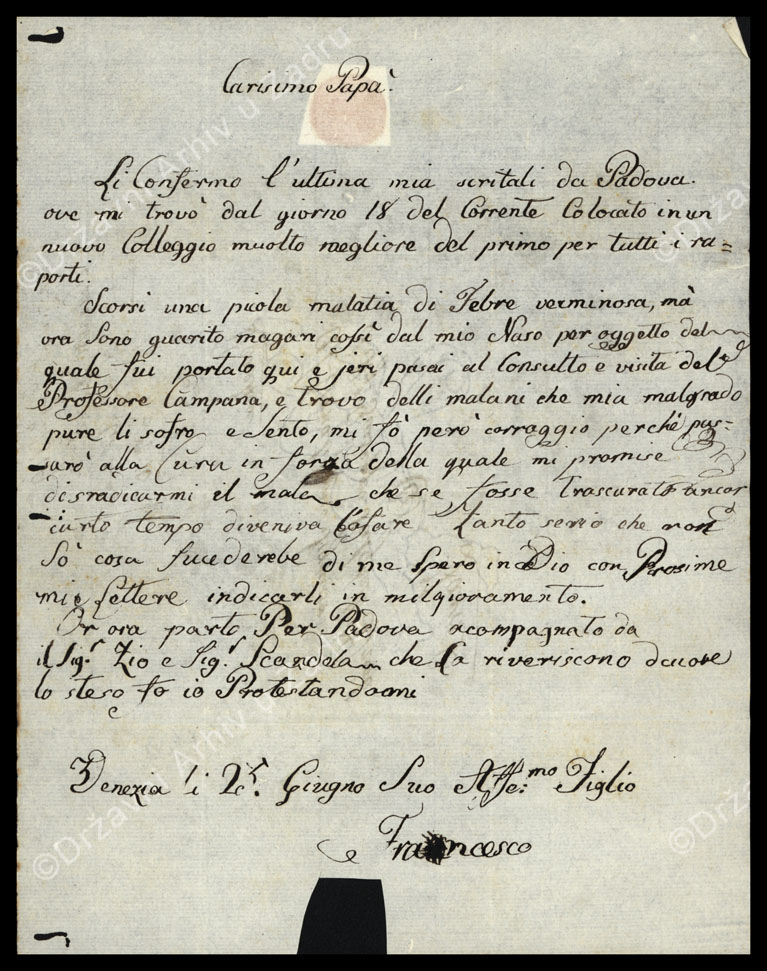 Carisimo Papà.
Li Confermo l'ultima mia scritali da Padova.
ove mi trovò dal giorno 18 del Corrente Colocato in un
nuovo Colleggio muolto megliore del primo per tutti i ra=
porti.
Scorsi una picola malatia di Febre verminosa, mà
ora sono guarito magari cossì dal mio Naso per oggello del
quale fui portato qui e jeri pasai al Consulto e visita del
Professore Campana, e trovo delli malani che mia malgrado
pure li sofro e sento, mi fò però corraggio perché pas=
sarò alla Cura in forza della quale mi promise
disradicarmi il male che se fosse trascurato ancor
curto tempo diveniva l'afare tanto serio che non
sò cosa sucederebe di me spero in Dio con Prosime
mie lettere indicarli in milgioramento.
Or ora parto Per Padova acompagnato da
il Sig.r Zio e Sig.r Scandela che La riveriscono dicuore
lo steso fo io Protestandomi
Venezia li Giugno Suo Affe:mo Figlio
Francesco
©Državni Arhiv u Zadru
©Državni Arhiv u Zadru
©Državni Arhiv u Zadru
©Državni Arhiv u Zadru